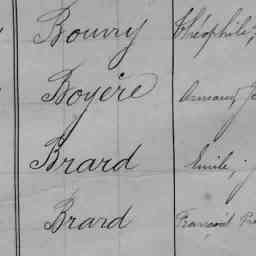 Bouvry Théophile,
Boyère Armand
Brard Emile,
Brard François